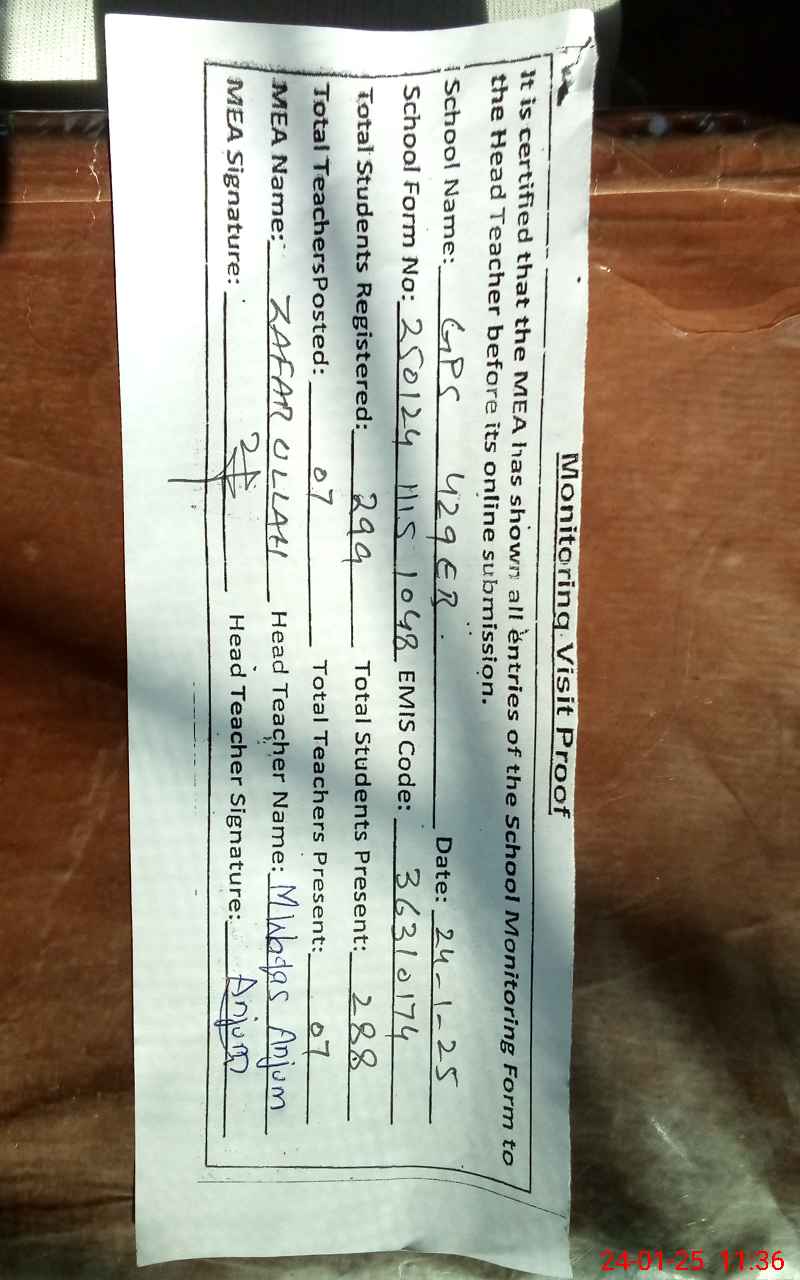 Monitoring Visit Proof
It is certified that the MEA has shown all entries of the School Monitoring Form to
the Head Teacher before its online submission.
School Name: GPS 429 EB Date: 24-1-25
School Form No: 250124 M15 1048 EMIS Code: 36310174
Total Students Registered: 299 Total Students Present: 288
Total TeachersPosted: 07 Total Teachers Present: 07
MEA Name: ZAFAR ULLAH Head Teacher Name: M Waqas Anjum
MEA Signature: Head Teacher Signature: Anjum
24-01-25 11:36